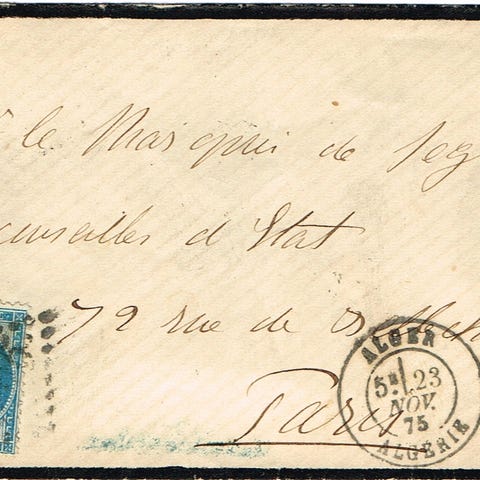 le Marquis de Seg
Conseiller d'Etat
72 rue de
Paris
ALGER
5E 23
NOV.
75
ALGERIE